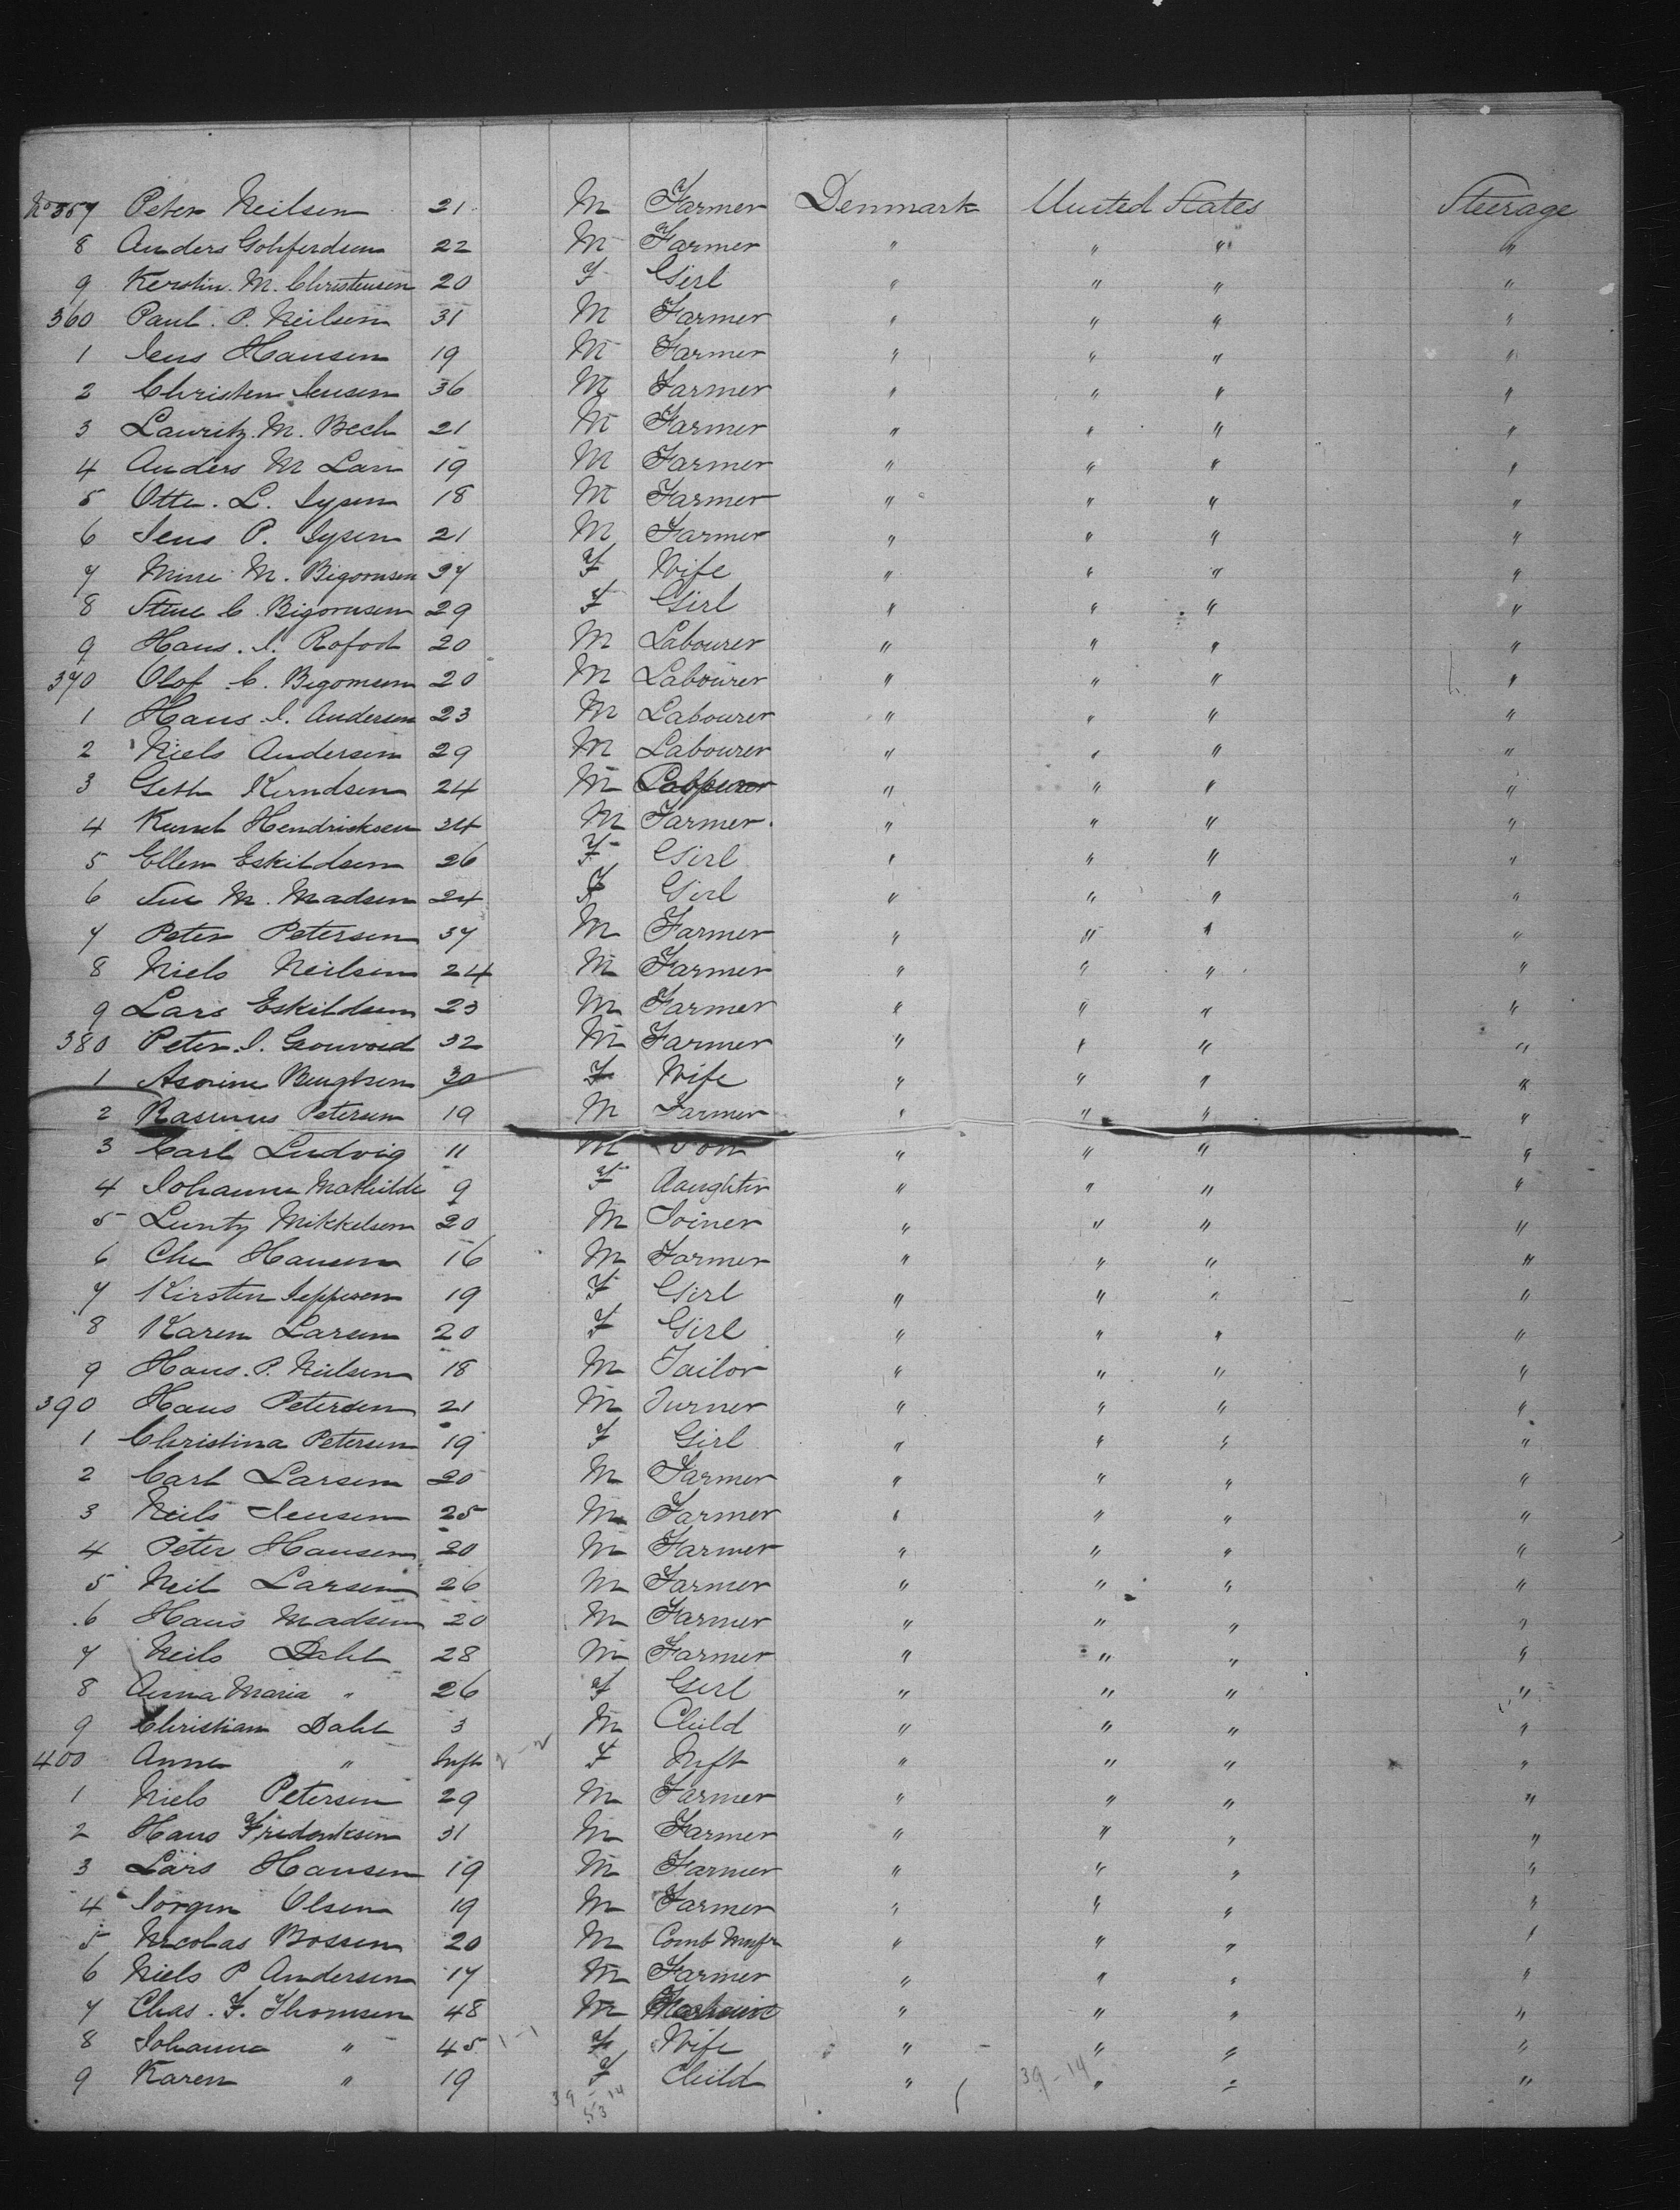 No 357 Peter Neilsen 21 M Farmer Denmark United States Steerage
8 Anders Gohferdsen 22 M Farmer " " " "
9 Kerstin. M. Christensen 20 F Girl " " " "
360 Paul. P. Neilsen 31 M Farmer " " " "
1 Jens Hansen 19 M Farmer " " " "
2 Christen Jensen 36 M Farmer " " " "
3 Lauritz. M. Bech 21 M Farmer " " " "
4 Anders M Lau 19 M Farmer " " " "
5 Otto. L. Sysen 18 M Farmer " " " "
6 Jens P. Sysen 21 M Farmer " " " "
7 Mine M. Bigomsen 37 F Wife " " " "
8 Stine C. Bigomsen 29 F Girl " " " "
9 Hans. J. Rofod 20 M Labourer " " " "
370 Olof C. Bigomsen 20 M Labourer " " " "
1 Hans J. Andersen 23 M Labourer " " " "
2 Niels Andersen 29 M Labourer " " " "
3 Geth Kerndsen 24 M " " " "
4 Kund Hendricksen 34 M Farmer. " " " "
5 Ellen Eskildsen 26 F Girl " " " "
6 M. Madsen 24 F Girl " " " "
7 Peter Petersen 37 M Farmer " " " "
8 Niels Neilsen 24 M Farmer " " " "
9 Lars Eskildsen 23 M Farmer " " " "
380 Peter. J. 32 M Farmer " " " "
1 Asorine Bengtsen 30 F Wife " " " "
2 Rasmus Petersen 19 M Farmer " " " "
3 Carl Ludvig 11 M Son " " " "
4 Johanne Mathilde 9 F Daughter " " " "
5 Luntz Mikkelsen 20 M Joiner " " " "
6 Chr Hansen 16 M Farmer " " " "
7 Kirsten Jeppesen 19 F Girl " " " "
8 Karen Larsen 20 F Girl " " " "
9 Hans. P. Neilsen 18 M Tailor " " " "
390 Hans Petersen 21 M Turner " " " "
1 Christina Petersen 19 F Girl " " " "
2 Carl Larsen 20 M Farmer " " " "
3 Neils Jensen 25 M Farmer " " " "
4 Peter Hansen 20 M Farmer " " " "
5 Neil Larsen 26 M Farmer " " " "
6 Hans Madsen 20 M Farmer " " " "
7 Neils Dahl 28 M Farmer " " " "
8 Anna Maria " 26 F Girl " " " "
9 Christian Dahl 3 M Child " " " "
400 Anne " Inft F Inft " " " "
1 Niels Petersen 29 M Farmer " " " "
2 Hans Fridericksen 31 M Farmer " " " "
3 Lars Hansen 19 M Farmer " " " "
4 Jorgen Olsen 19 M Farmer " " " "
5 Nicolas Bossen 20 M Comb Mnfr " " " "
6 Niels P Andersen 17 M Farmer " " " "
7 Chas. F. Thomsen 48 M Machinist " " " "
8 Johanna " 45 1-1 F Wife " " " "
9 Karen " 19 F Child " " " "
39-14 39-14
53